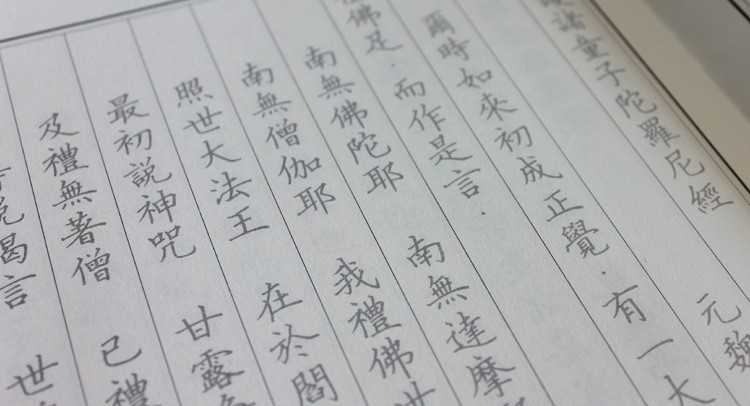 諸童子陀羅尼經
元魏
爾時如來初成正覺．有一大
佛足．而作是言．
南無佛陀耶 南無達摩
南無僧伽耶 我禮佛世
照世大法王 在於閻
最初說神咒 甘露
及禮無著僧 已禮
說偈言 世